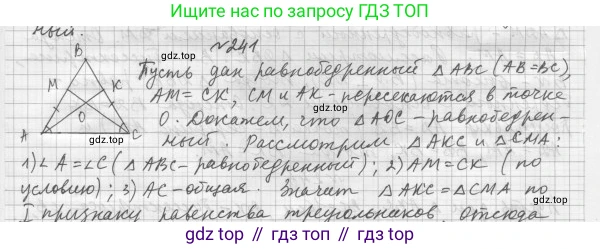 Ищите нас по запросу ГДЗ ТОП
ный.
№241
gdz.top
B
Пусть дан равнобедренный △ABC (AB=BC),
gdz.top
M K
AM=CK, CM и AK - пересекаются в точке
gdz.top
O
O. Докажем, что △AOC - равнобедрен-
A C
ный. Рассмотрим △AKC и △CMA:
gdz.top
1) ∠A=∠C (△ABC - равнобедренный); 2) AM=CK (по
условию); 3) AC - общая. Значит △AKC=△CMA по
gdz.top
I признаку равенства треугольников. Отсюда
gdz.top // gdz.top // gdz.top